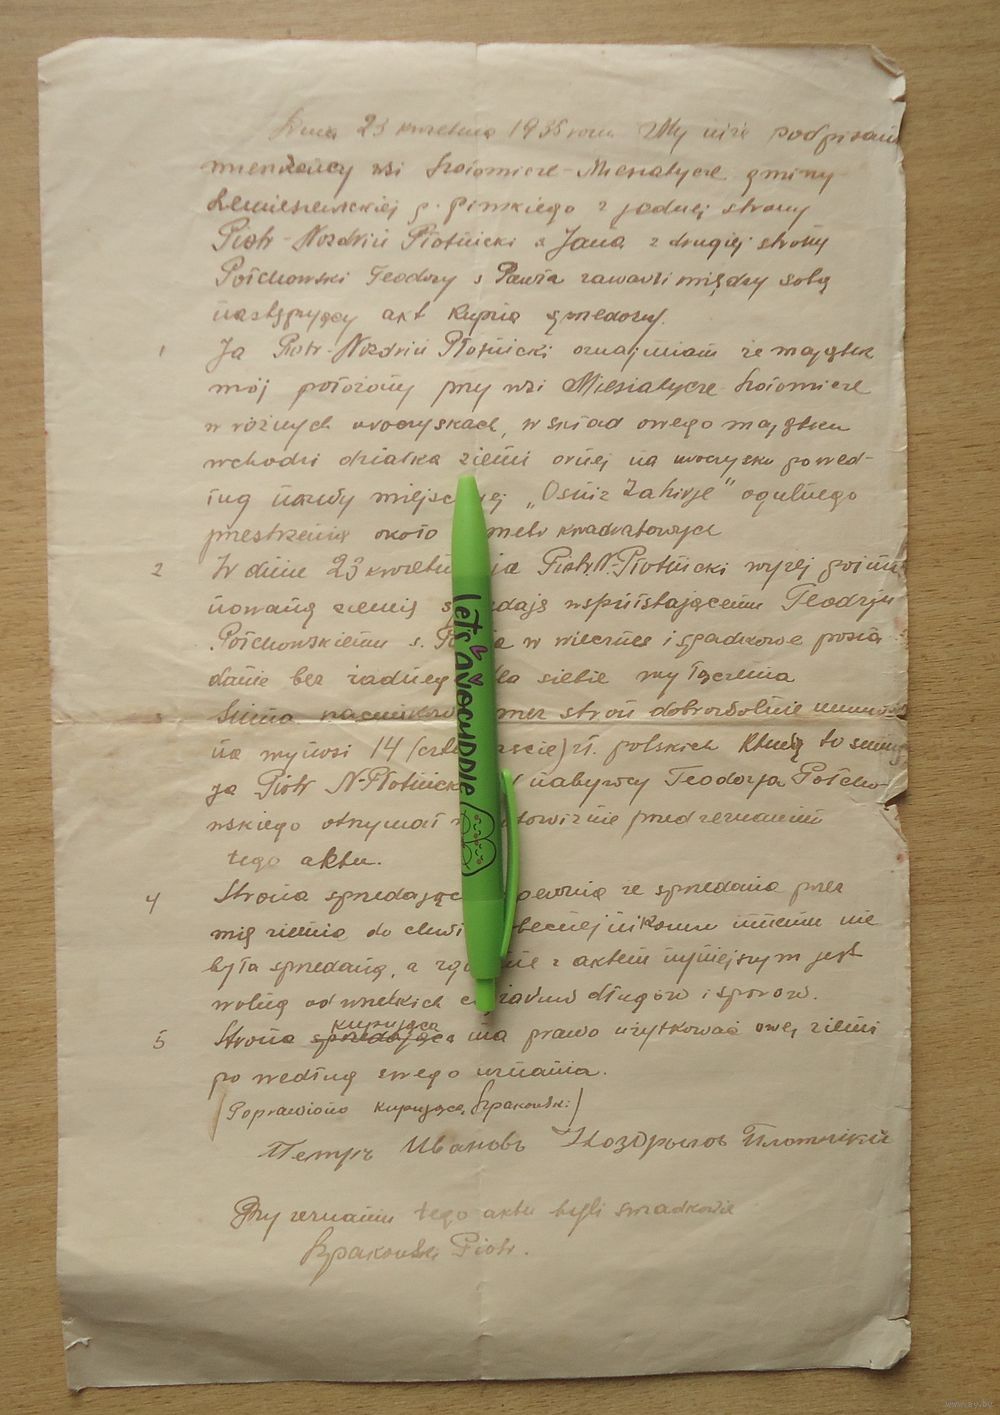 Dnia 23 kwietnia 1935 roku My niżej podpisani
mieszkańcy wsi Mesiatycze gminy
Lemieszewskiej p. Pinskiego z jednej strony
Piotr-Nozdriń Płotnicki s Jana z drugiej strony
Połchowski Teodory s Pawła zawarli między sobą
następujący akt kupna sprzedaży.
1 Ja Piotr-Nozdriń Płotnicki oznajmiam że majątek
mój położony przy wsi Miesiatycze
w różnych uroczyskach, w skład owego majątku
wchodzi działka ziemi ornej na uroczysku powed-
ług nazwy miejscowej „Osniż Zahirje" ogulnego
przestrzenią około metr kwadratowych
2 W dniu 23 kwietnia ja Piotr N-Płotnicki wyżej poimie
nowaną ziemię wspułstającemu Teodrju
Połchowskiemu s. w wieczne i spadkowe posia
danie bez dla siebie wyłączenia
3 Suma przez stron dobrowolnie umówio
na wynosi 14 (czternaście) zł. polskich Którą to sumę
ja Piotr N-Płotnicki od nabywcy Teodorja Połcho-
wskiego otrzymał gotowiznie przed zeznaniem
tego aktu.
4 Strona sprzedająca zapewnia że sprzedana przez
mię ziemia do chwili obecnej nikomu innemu nie
była sprzedaną, a zgodnie z aktem nyniejszym jest
wolną od wszelkich długów i sporow.
kupująca
5 Strona sprzedająca ma prawo użytkować owej ziemi
powedług swego uznania.
(Poprawiono kupująca Szpakowski)
Петръ Ивановъ Ноздрыновъ Плотницкий
Przy zeznaniu tego aktu byli swiadkowie
Szpakowski Piotr.
Let's avocuddle
www.ay.by